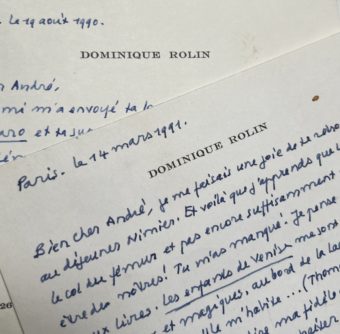 le 19 août 1990.
DOMINIQUE ROLIN
André,
m'a envoyé ta
et ta
Paris. le 14 mars 1991.
DOMINIQUE ROLIN
Bien cher André, je me faisais une joie de te
au déjeuner Nimier. Et voilà que j'apprends que
le col du fémur et pas encore suffisamment
être des nôtres! Tu m'as manqué. Je pense
livres. Les enfants de Venise
et magiques, au bord de la
m'habite...(Thom
ma
26